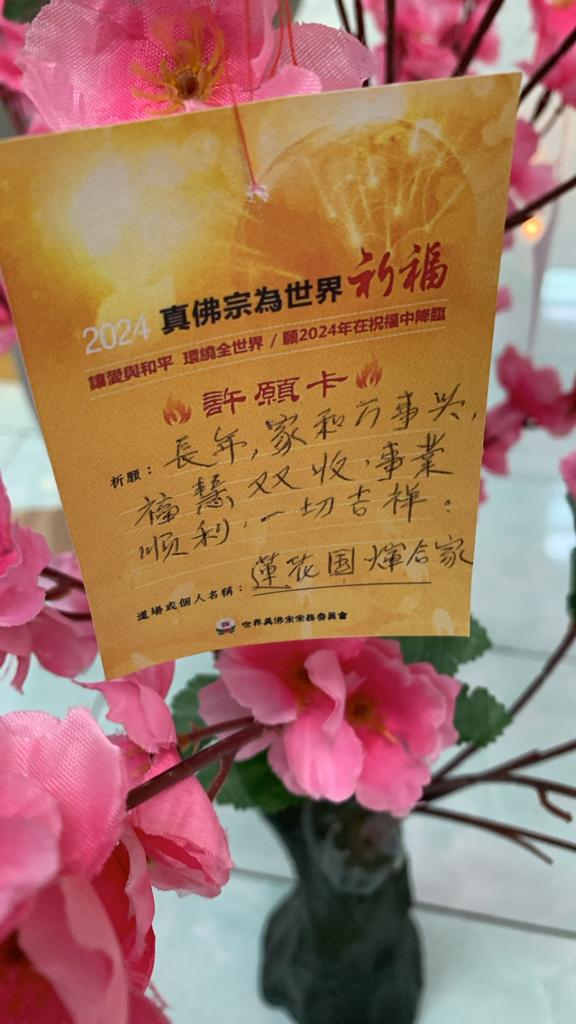 2024 真佛宗為世界祈福
讓愛與和平 環繞全世界 / 願2024年在祝福中降臨
許願卡
祈願：長年，家和万事兴，
福慧双收，事業
順利，一切吉祥。
道場或個人名稱：蓮花国煇合家
世界真佛宗宗務委員會